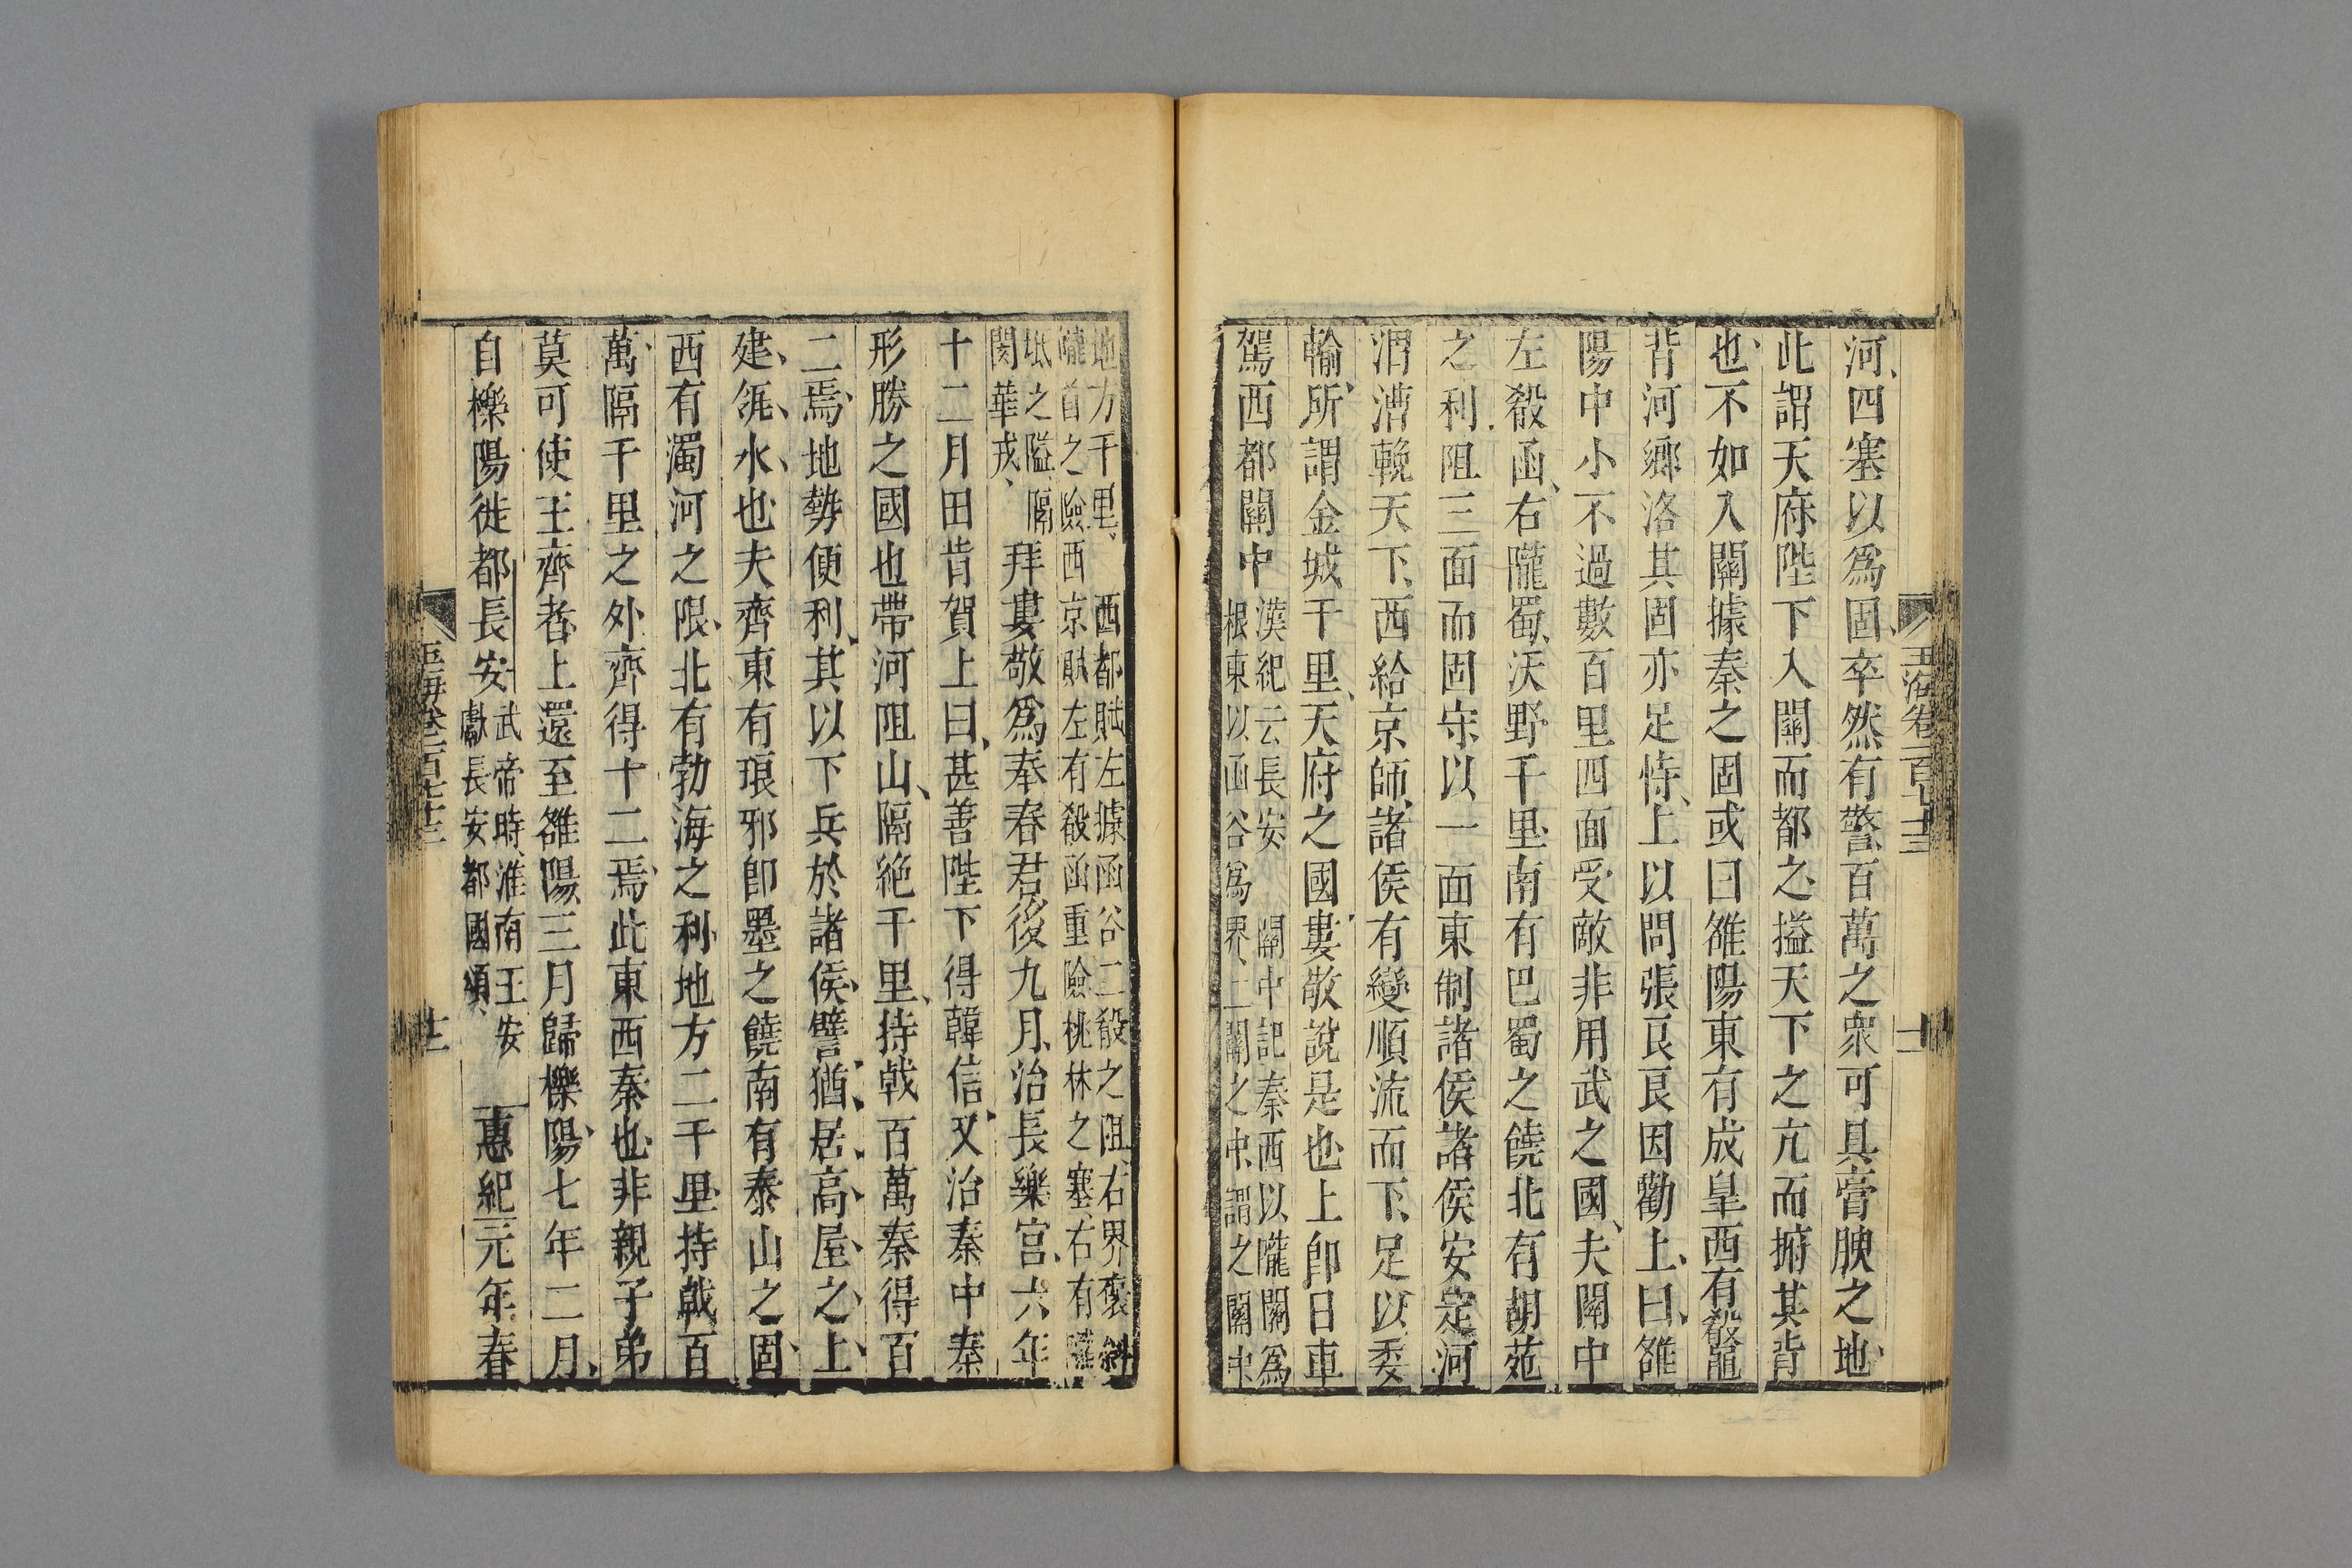 河四塞以爲固卒然有警百萬之衆可具膏腴之地
此謂天府陛下入關而都之搤天下之亢而拊其背
也不如入關據秦之固或曰雒陽東有成皐西有殽黽
背河鄉洛其固亦足恃上以問張良良因勸上曰雒
陽中小不過數百里四面受敵非用武之國夫關中
左殽函右隴蜀沃野千里南有巴蜀之饒北有胡苑
之利阻三面而固守以一面東制諸侯諸侯安定河
渭漕輓天下西給京師諸侯有變順流而下足以委
輸所謂金城千里天府之國婁敬說是也上卽日車
駕西都關中漢紀云長安 關中記秦西以隴關爲
根東以函谷爲界二關之中謂之關中
地方千里 西都賦左據函谷二殽之阻右界褒斜
隴首之險西京賦左有殽函重險桃林之塞右有隴
坻之隘隔
閡華戎拜婁敬爲奉春君後九月治長樂宮六年
十二月田肯賀上曰甚善陛下得韓信又治秦中秦
形勝之國也帶河阻山隔絶千里持戟百萬秦得百
二焉地勢便利其以下兵於諸侯譬猶居高屋之上
建瓴水也夫齊東有琅邪卽墨之饒南有泰山之固
西有濁河之限北有勃海之利地方二千里持戟百
萬隔千里之外齊得十二焉此東西秦也非親子弟
莫可使王齊者上還至雒陽三月歸櫟陽七年二月
自櫟陽徙都長安武帝時淮南王安
獻長安都國頌惠紀元年春
玉海卷一百七十三
十二